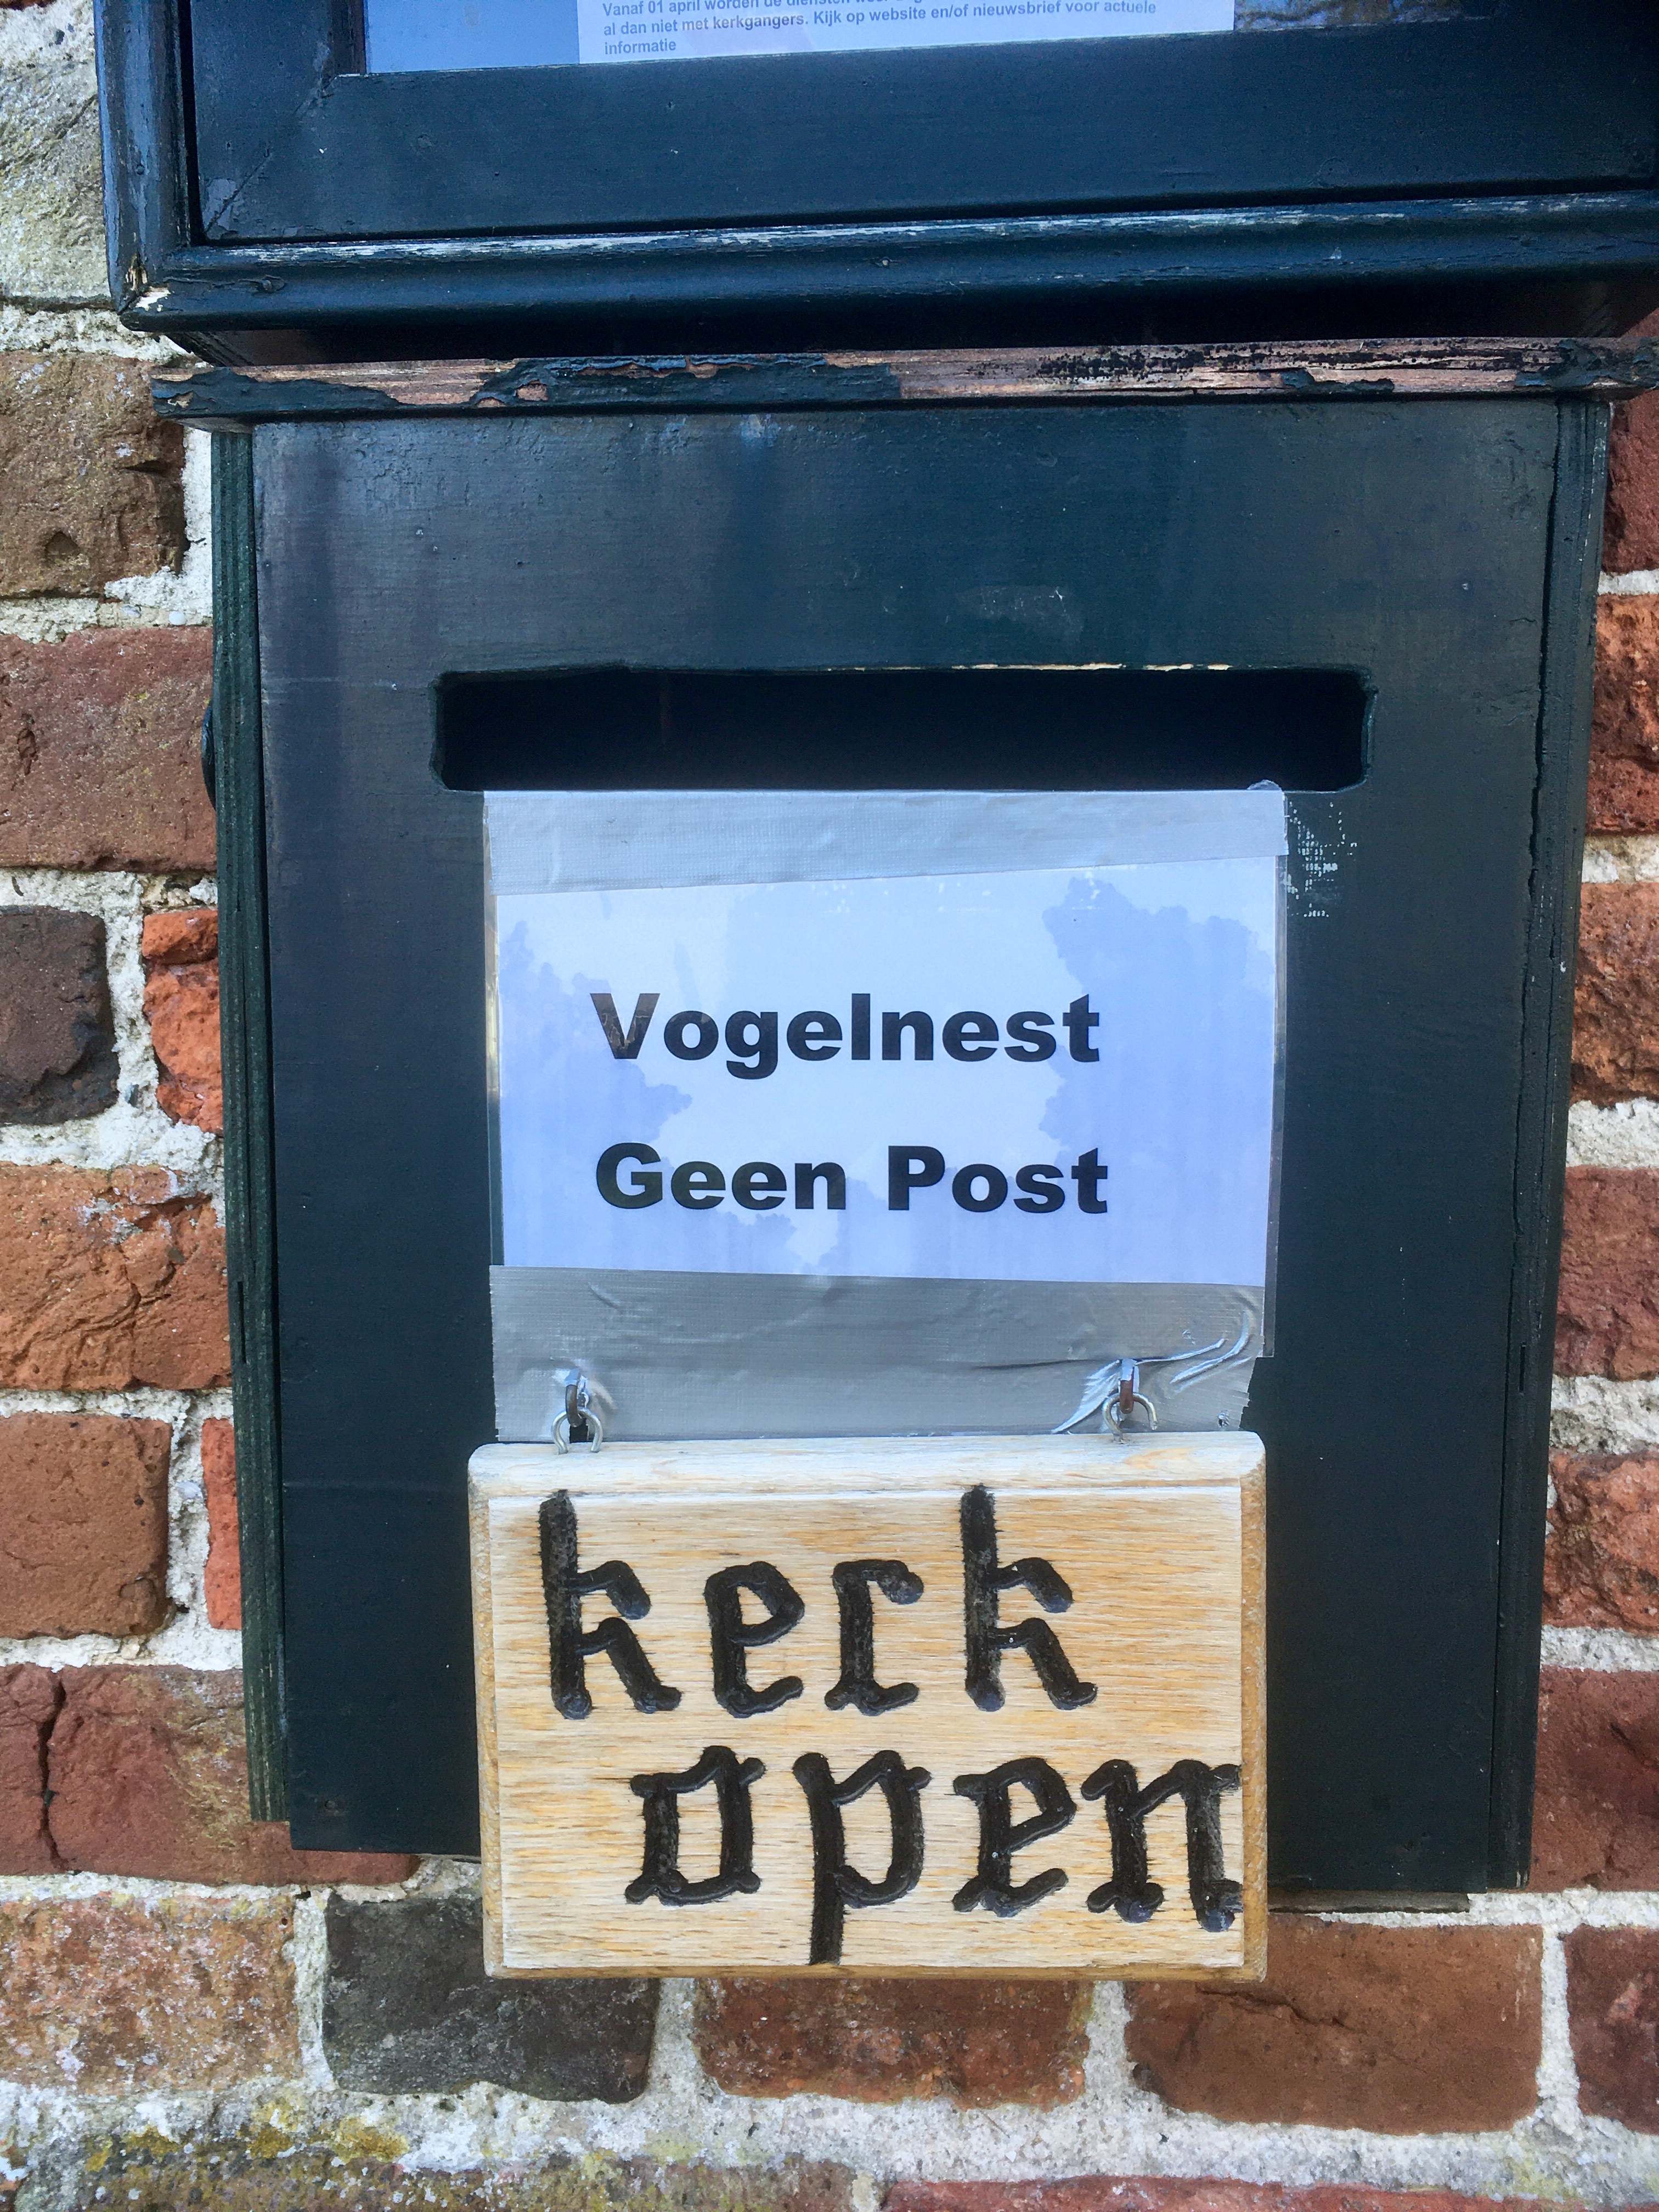 Vanaf 01 april worden de diensten
al dan niet met kerkgangers. Kijk op website en/of nieuwsbrief voor actuele
informatie
Vogelnest
Geen Post
kerk
open